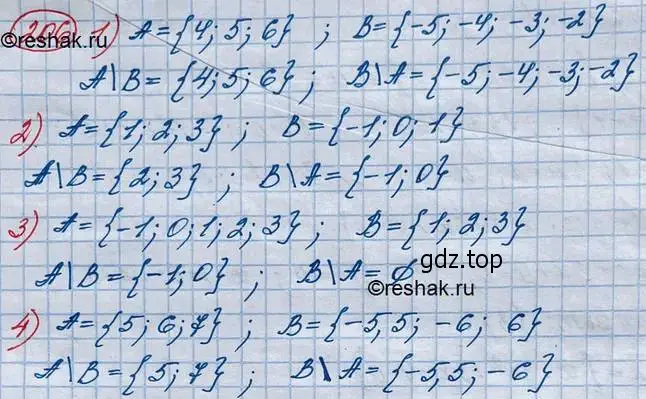 206 1) A={4; 5; 6} ; B={-5; -4; -3; -2}
©reshak.ru
A\B={4; 5; 6} ; B\A={-5; -4; -3; -2}
2) A={1; 2; 3} ; B={-1; 0; 1}
A\B={2; 3} ; B\A={-1; 0}
3) A={-1; 0; 1; 2; 3} ; B={1; 2; 3}
A\B={-1; 0} ; B\A=∅
gdz.top
©reshak.ru
4) A={5; 6; 7} ; B={-5,5; -6; 6}
A\B={5; 7} ; B\A={-5,5; -6}